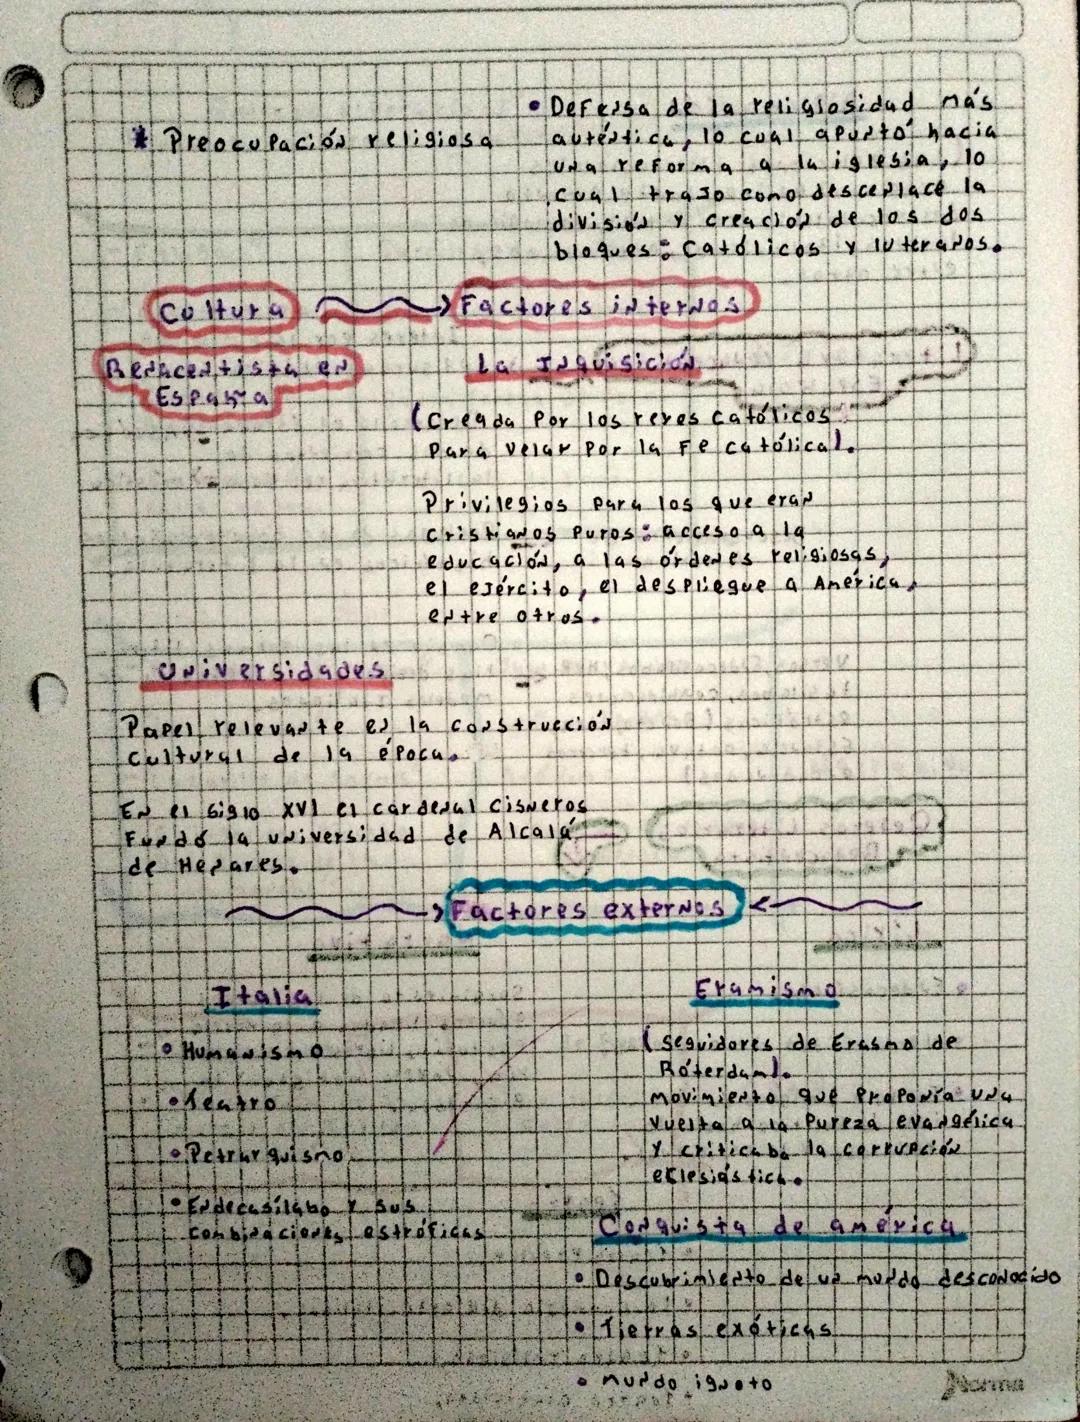 * Preocupación religiosa
• Defensa de la religiosidad más
auténtica, lo cual apuntó hacia
una reforma a la iglesia, lo
cual trajo como desenlace la
división y creación de los dos
bloques: Católicos y luteranos.
Cultura
Renacentista en
España
Factores internos
La Inquisición
(Creada por los reyes católicos
para velar por la Fe católica).
Privilegios para los que eran
cristianos puros: acceso a la
educación, a las órdenes religiosas,
el ejército, el despliegue a América,
entre otros.
Universidades
Papel relevante en la construcción
cultural de la época.
En el siglo XVI el cardenal Cisneros
Fundó la universidad de Alcalá
de Henares.
Factores externos
Italia
• Humanismo
• Teatro
• Petrarquismo
• Endecasílabo y sus
combinaciones estróficas
Eramismo
(seguidores de Erasmo de
Róterdam).
movimiento que proponía una
vuelta a la pureza evangélica
y criticaba la corrupción
eclesiástica.
Conquista de américa
• Descubrimiento de un mundo desconocido
• Tierras exóticas
• mundo ignoto
Norma